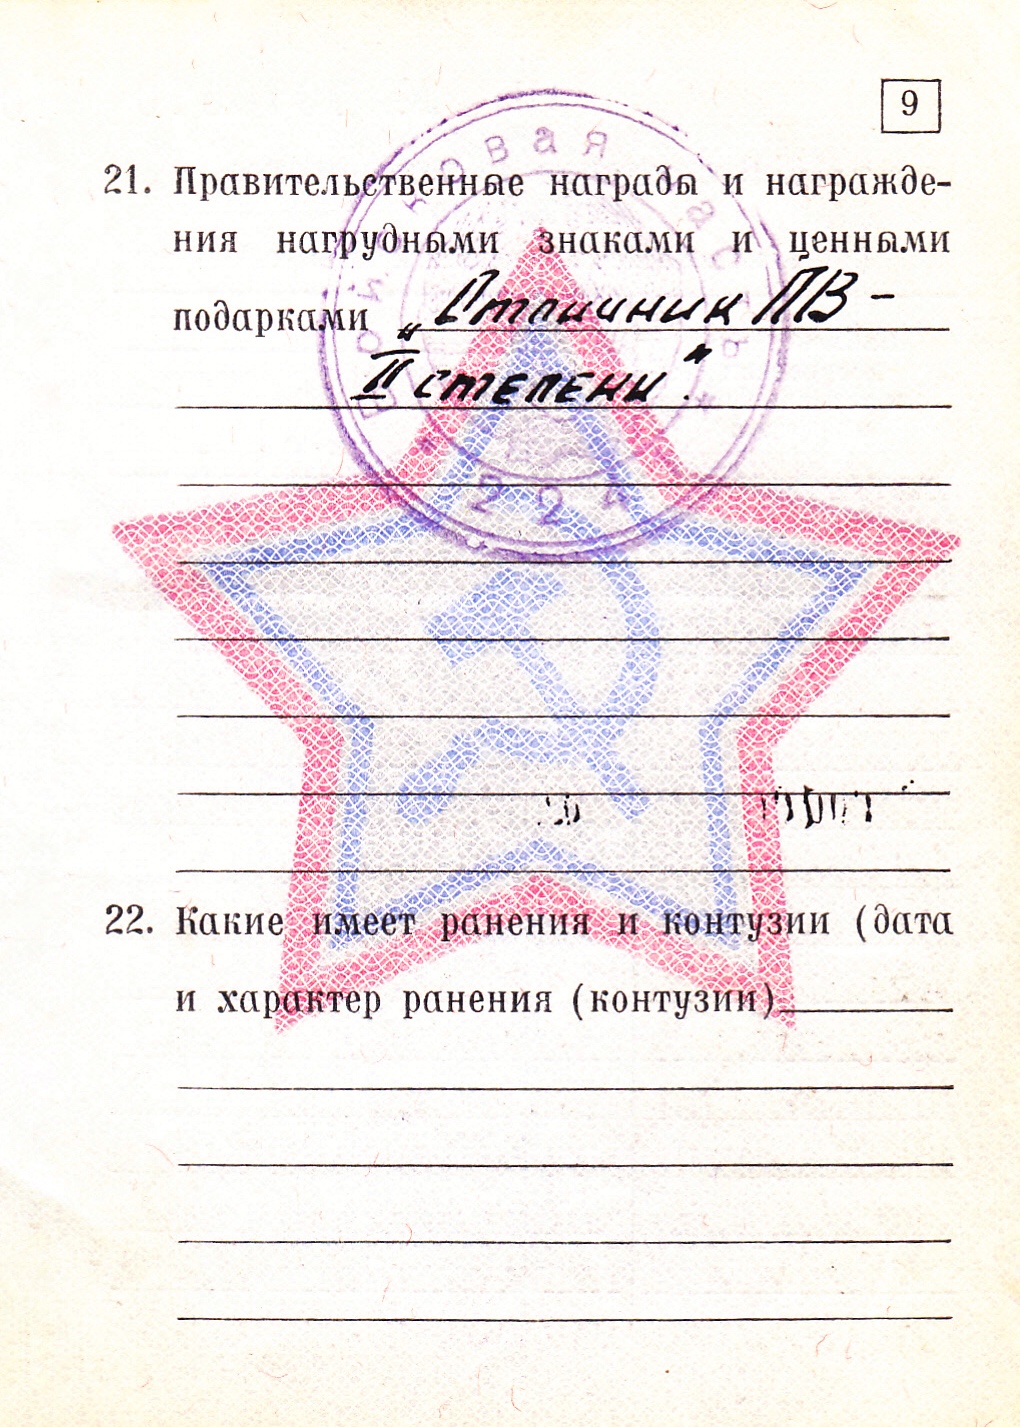 9
21. Правительственные награды и награжде-
ния нагрудными знаками и ценными
подарками „Отличник ПВ –
II степени".
Войсковая часть
22. Какие имеет ранения и контузии (дата
и характер ранения (контузии)